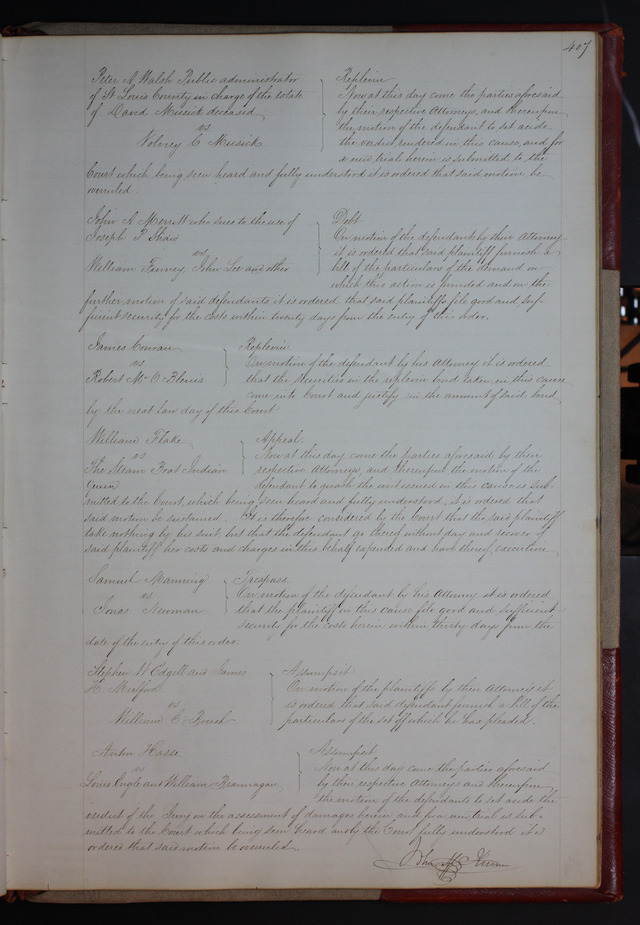 407
Peter A Walsh Public administrator
of St Louis County in charge of the estate
of David Musick deceased
vs
Volney C Musick
Replevin
Now at this day come the parties aforesaid
by their respective Attorneys, and thereupon
the motion of the defendant to set aside
the verdict rendered in this cause, and for
a new trial herein is submitted to the
Court which being seen heard and fully understood it is ordered that said motion be
overruled.
John A Merritt who sues to the use of
Joseph P Shaw
vs
William Finney, John Lee and other
Debt
On motion of the defendant by their Attorney
it is ordered that said plaintiff furnish a
bill of the particulars of the demand on
which this action is founded and on the
further motion of said defendants it is ordered that said plaintiffs file good and suf-
ficient security for the costs within twenty days from the entry of this order.
James Conran
vs
Robert M O Blenis
Replevin
On motion of the defendant by his Attorney it is ordered
that the securities in the replevin bond taken in this cause
come into Court and justify in the amount of said bond
by the next law day of this Court
William Flake
vs
The Steam Boat Indian
Queen
Appeal.
Now at this day come the parties aforesaid by their
respective Attorneys, and thereupon the motion of the
defendant to quash the writ issued in this cause is sub-
mitted to the Court, which being seen heard and fully understood, it is ordered that
said motion be sustained. It is therefore considered by the Court that the said plaintiff
take nothing by his suit but that the defendant go thereof without day and recover of
said plaintiff her costs and charges in this behalf expended and have thereof execution
Samuel Manning
vs
Jonas Newman
Trespass.
On motion of the defendant by his Attorney it is ordered
that the plaintiff in this cause file good and sufficient
security for the costs herein within thirty days from the
date of the entry of this order.
Stephen W Edgell and James
H.
vs
William C
Assumpsit
On motion of the plaintiffs by their Attorney it
is ordered that said defendant furnish a bill of the
particulars of the set off which he has pleaded.
Anton Hasse
vs
Louis Engle and William Brannagan
Assumpsit
Now at this day come the parties aforesaid
by their respective Attorneys and thereupon
the motion of the defendants to set aside the
verdict of the Jury on the assessment of damages herein and for a new trial is sub-
mitted to the Court which being seen heard and by the Court fully understood it is
ordered that said motion be overruled.